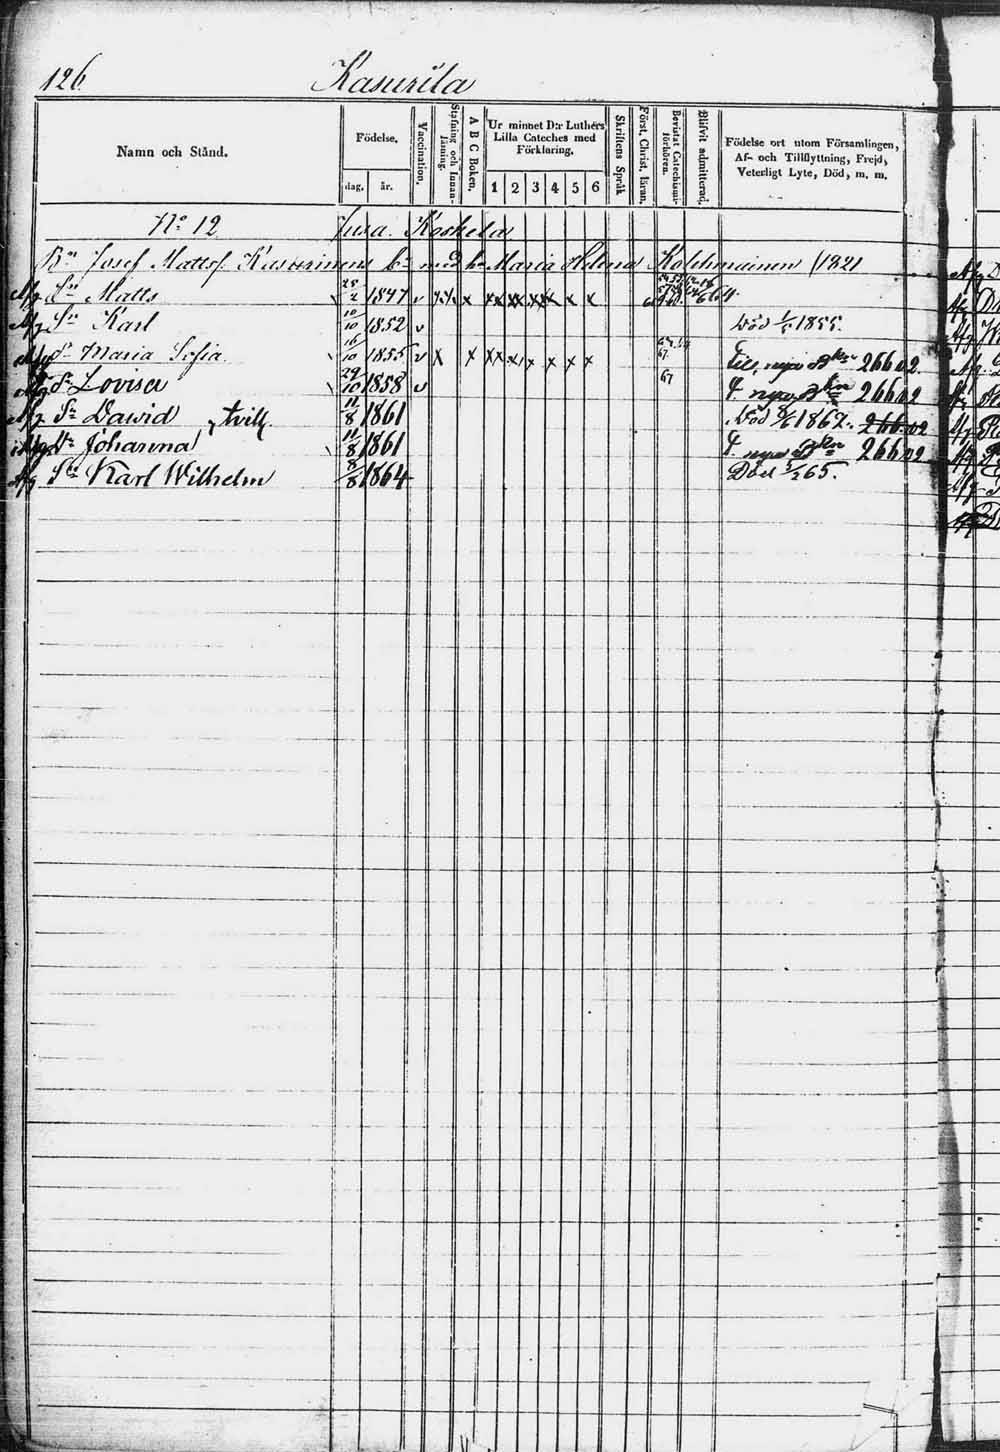 126 Kasurila
Namn och Stånd. Födelse. dag. år. Vaccination. Stafning och Innanläsning. A B C Boken. Ur minnet D:r Luthers Lilla Cateches med Förklaring. 1 2 3 4 5 6 Skriftens Språk Först. Christ. läran. Bevistat Catechismiförhören. Blifvit admitterad. Födelse ort utom Församlingen, Af- och Tillflyttning, Frejd, Veterligt Lyte, Död, m. m.
No 12 Jusa Koskela
Bn Josef Mattsf. Kasurinens br med h. Maria Helena Kolehmainen /1821
Sn Matts 1847 v x x xx xx x x x x 664
Sn Karl 10/10 1852 v Död 1855.
Dr Maria Sofia 16/10 1855 v x x xx x x x x x 67. till nya Bkn 266 02
Dr Lovisa 29/10 1858 v 67 t. nya Bkn 266 02
Sn Dawid tvill. 11/8 1861 Död 1867. 266.02
Dr Johanna 11/8 1861 t. nya Bkn 266 02
Sn Karl Wilhelm 8/8 1864 Död 65.